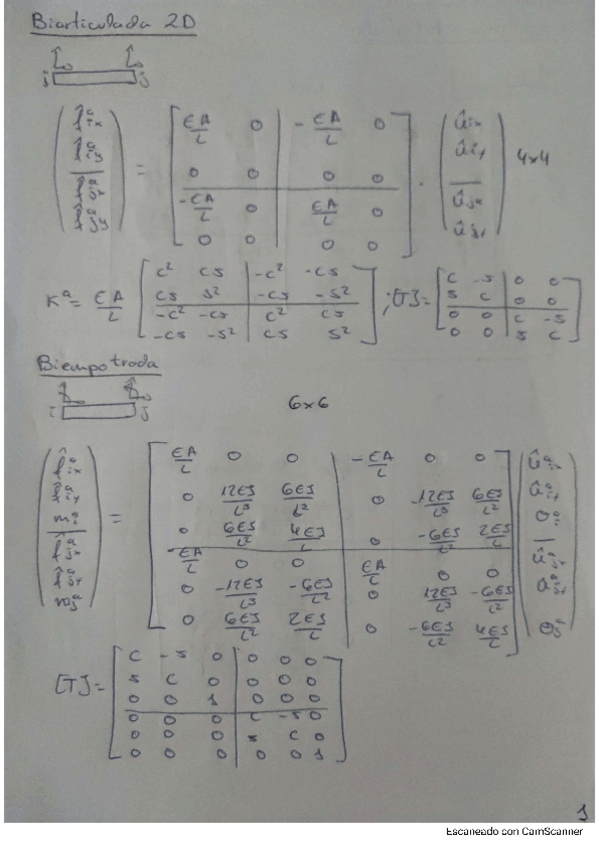 Biarticulada 2D
i j
( f̂ᵃix ; f̂ᵃiy ; f̂ᵃjx ; f̂ᵃjy ) = [ EA/L 0 | -EA/L 0 ; 0 0 | 0 0 ; -EA/L 0 | EA/L 0 ; 0 0 | 0 0 ] · ( ûix ; ûiy ; ûjx ; ûjy ) 4x4
Kᵃ = EA/L [ c² cs | -c² -cs ; cs s² | -cs -s² ; -c² -cs | c² cs ; -cs -s² | cs s² ] ; [T] = [ c -s | 0 0 ; s c | 0 0 ; 0 0 | c -s ; 0 0 | s c ]
Biempotrada
i j
6x6
( f̂ᵃix ; f̂ᵃiy ; mᵃi ; f̂ᵃjx ; f̂ᵃjy ; mᵃj ) = [ EA/L 0 0 | -EA/L 0 0 ; 0 12EI/L³ 6EI/L² | 0 -12EI/L³ 6EI/L² ; 0 6EI/L² 4EI/L | 0 -6EI/L² 2EI/L ; -EA/L 0 0 | EA/L 0 0 ; 0 -12EI/L³ -6EI/L² | 0 12EI/L³ -6EI/L² ; 0 6EI/L² 2EI/L | 0 -6EI/L² 4EI/L ] ( ûᵃix ; ûᵃiy ; θᵃi ; ûᵃjx ; ûᵃjy ; θᵃj )
[T] = [ c -s 0 | 0 0 0 ; s c 0 | 0 0 0 ; 0 0 1 | 0 0 0 ; 0 0 0 | c -s 0 ; 0 0 0 | s c 0 ; 0 0 0 | 0 0 1 ]
1
Escaneado con CamScanner